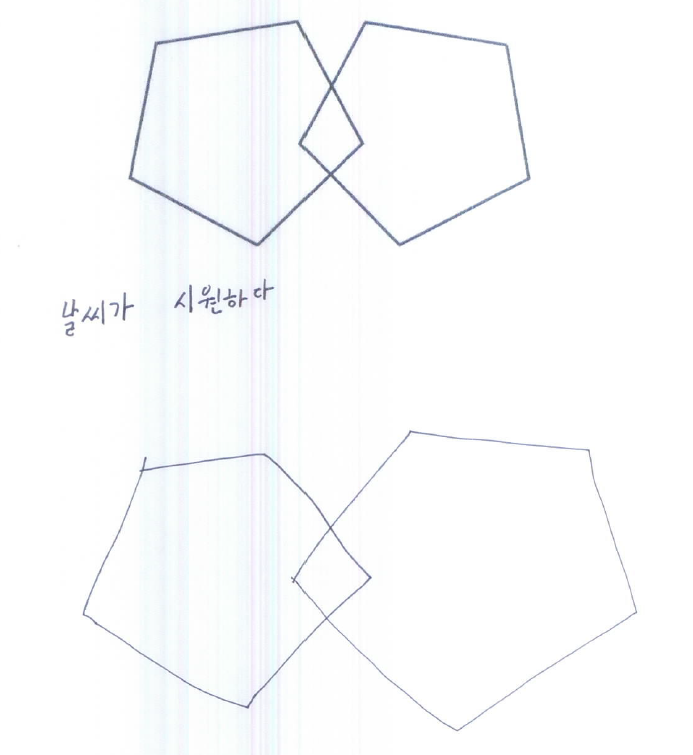 날씨가 시원하다